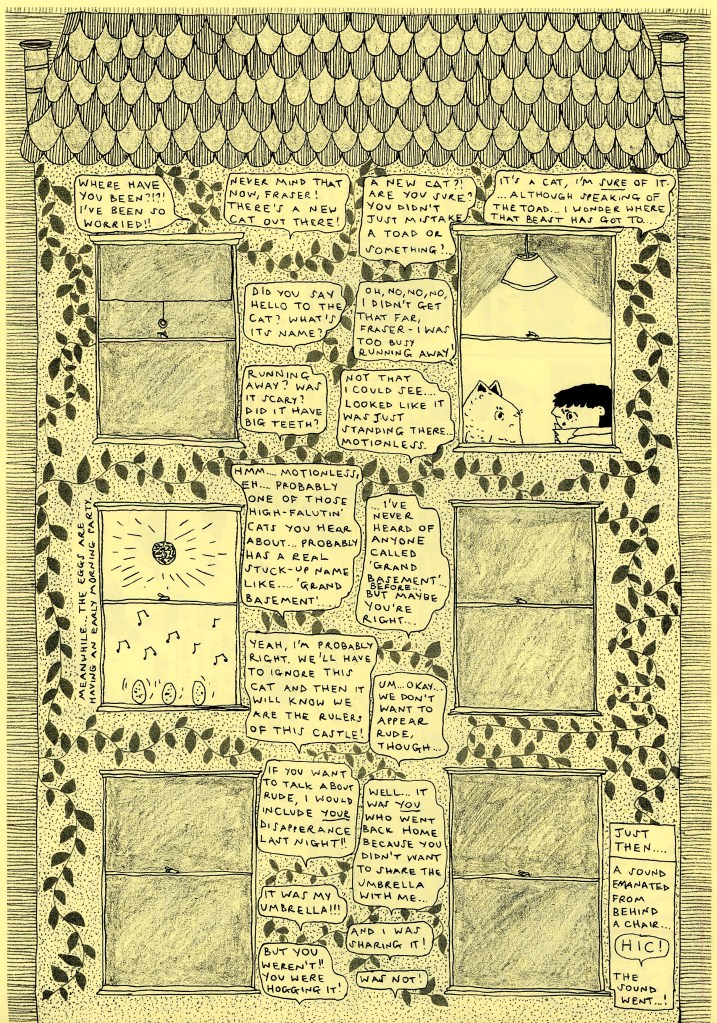 WHERE HAVE
YOU BEEN?!?!
I'VE BEEN SO
WORRIED!!
NEVER MIND THAT
NOW, FRASER!
THERE'S A NEW
CAT OUT THERE!
A NEW CAT?!
ARE YOU SURE?
YOU DIDN'T
JUST MISTAKE
A TOAD OR
SOMETHING?..
IT'S A CAT, I'M SURE OF IT
...ALTHOUGH SPEAKING OF
THE TOAD... I WONDER WHERE
THAT BEAST HAS GOT TO...
DID YOU SAY
HELLO TO THE
CAT? WHAT'S
ITS NAME?
OH, NO, NO, NO,
I DIDN'T GET
THAT FAR,
FRASER - I WAS
TOO BUSY
RUNNING AWAY
RUNNING
AWAY? WAS
IT SCARY?
DID IT HAVE
BIG TEETH?
NOT THAT
I COULD SEE...
LOOKED LIKE IT
WAS JUST
STANDING THERE.
MOTIONLESS.
HMM.... MOTIONLESS,
EH.... PROBABLY
ONE OF THOSE
HIGH-FALUTIN'
CATS YOU HEAR
ABOUT... PROBABLY
HAS A REAL
STUCK-UP NAME
LIKE.... 'GRAND
BASEMENT'
...I'VE
NEVER
HEARD OF
ANYONE
CALLED
'GRAND
BASEMENT'
BEFORE...
BUT MAYBE
YOU'RE
RIGHT....
MEANWHILE... THE EGGS ARE
HAVING AN EARLY MORNING PARTY
YEAH, I'M PROBABLY
RIGHT. WE'LL HAVE
TO IGNORE THIS
CAT AND THEN IT
WILL KNOW WE
ARE THE RULERS
OF THIS CASTLE!
UM...OKAY...
WE DON'T
WANT TO
APPEAR
RUDE,
THOUGH...
IF YOU WANT
TO TALK ABOUT
RUDE, I WOULD
INCLUDE YOUR
DISAPPERANCE
LAST NIGHT!!
WELL... IT
WAS YOU
WHO WENT
BACK HOME
BECAUSE YOU
DIDN'T WANT
TO SHARE THE
UMBRELLA
WITH ME...
IT WAS MY
UMBRELLA!!!
AND I WAS
SHARING IT!
BUT YOU
WEREN'T!!
YOU WERE
HOGGING IT!
WAS NOT!
JUST
THEN....
A SOUND
EMANATED
FROM
BEHIND
A CHAIR...
HIC!
THE
SOUND
WENT...!